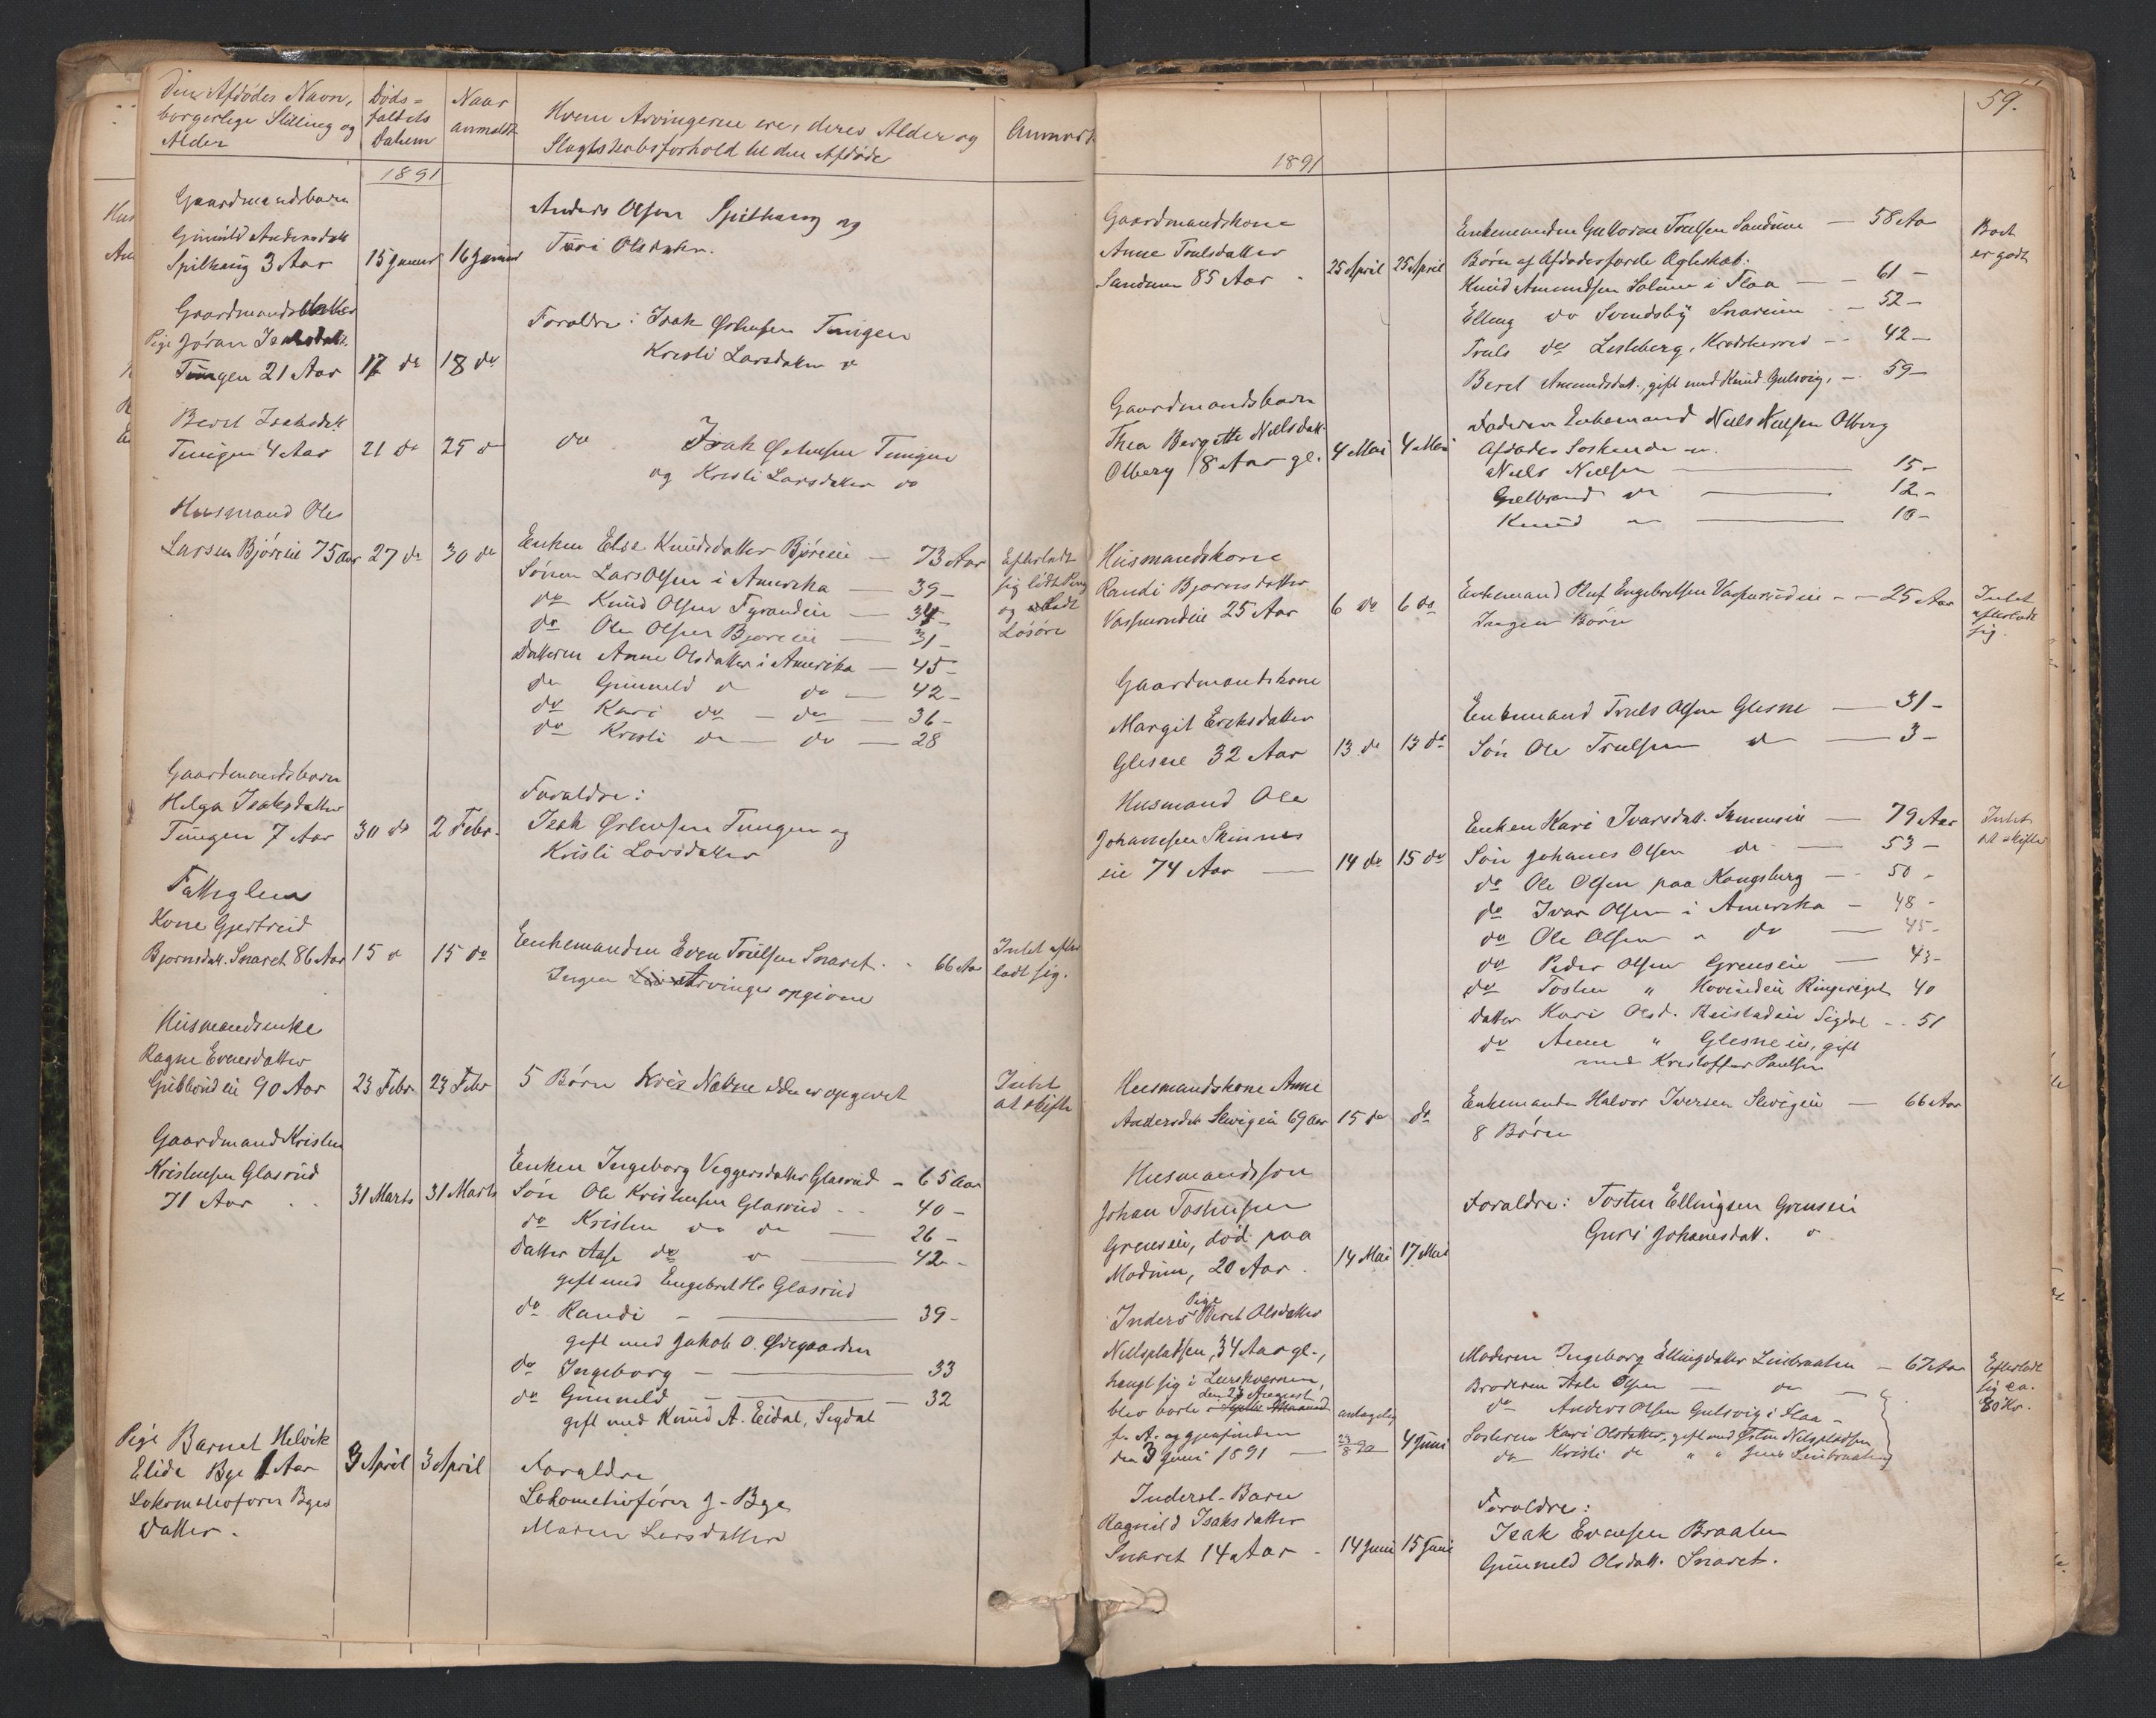 Den Afdødes Navn,
borgerlige Stilling og
Alder
Døds=
faldets
Datum
Naar
anmeldt
Hvem Arvingerne ere, deres Alder og
Slægtskabsforhold til den Afdøde
Anmærk
1891
Gaardmandsbarn
Gunild Andersdatt
Spilhaug 3 Aar
15 Januar
16 Januar
Anders Olsen Spilhaug og
Turi Olsdatter.
Gaardmandsdatter
Pige Jøran Isaksdatt.
Tungen 21 Aar
17 do
18 do
Forældre: Isak Østensen Tungen
Kristi Larsdatter do
Beret Isaksdatt
Tungen 4 Aar
21 do
25 do
do Isak Østensen Tungen
og Kristi Larsdatter do
Husmand Ole
Larsen Bjøreeie 75 Aar
27 do
30 do
Enken Else Knudsdatter Bjøreeie — 73 Aar
Sønnen Lars Olsen i Amerika — 39 —
do Knud Olsen — 34 —
do Ole Olsen Bjøreeie — 31 —
Datteren Anne Olsdatter i Amerika — 45 —
do Gunneld do do — 42 —
do Kari do — do — 36 —
do Kristi do — do — 28
Efterladt
sig lidt Penge
og
Løsøre
Gaardmandsbarn
Helga Isaksdatter
Tungen 7 Aar
30 do
2 Febr.
Forældre:
Isak Østensen Tungen og
Kristi Larsdatter
Fattiglem
Kone Gjertrud
Bjørnsdatt. Snaret 86 Aar
15 do
15 do
Enkemanden Even Trulsen Snaret. - 66 Aar
Ingen Arvinger opgivne
Intet efter
ladt sig.
Husmandsenke
Ragne Evensdatter
Gubberudeie 90 Aar
23 Febr
23 Febr
5 Børn hvis Navne ikke er opgivet
Intet
at skifte
Gaardmand Kristen
Kristensen Glasrud
71 Aar
31 Marts
31 Marts
Enken Ingeborg Veggersdatter Glasrud — 65 Aar
Søn Ole Kristensen Glasrud — 40 —
do Kristen do do — 26 —
Datter Aase do do — 42 —
gift med Engebret Hr Glasrud
do Randi — 39 —
gift med Jakob O. Ødegaarden
do Ingeborg — 33
do Gunneld — 32
gift med Knud A. Eidal, Sigdal
Pige Barnet Helvik
Elida Bye 1 Aar
Lokomotivfører Byes
Datter.
3 April
3 April
Forældre
Lokomotivfører J. Bye
Maren Larsdatter
59.
1891
Gaardmandskone
Anne Trulsdatter
Sandum 85 Aar
25 April
25 April
Enkemanden Guttorm Trulsen Sandum — 58 Aar
Børn af Afdødes første Ægteskab:
Knud Amundsen Solum i Flaa — 61 —
Elling do Svendsby Snarum — 52 —
Truls do Lesteberg, Krødsherred — 42 —
Beret Amundsdatt., gift med Knud Gulsvig, — 59 —
Boet
er godt
Gaardmandsbarn
Thea Bergitte Nielsdatt.
Olberg 18 Aar gl.
4 Mai
4 Mai
Faderen Enkemand Niels Nielsen Olberg
Afdødes Søskende er.
Niels Nielsen — 15 —
Gulbrand do — 12 —
Knud do — 10 —
Husmandskone
Randi Bjørnsdatter
Vasfarudeie 25 Aar
6 do
6 do
Enkemand Oluf Engebretsen Vasfarudeie — 25 Aar
Ingen Børn
Intet
efterladt
sig.
Gaardmandskone
Margit Eriksdatter
Glesne 32 Aar
13 do
13 do
Enkemand Truls Olsen Glesne — 31 —
Søn Ole Trulsen do — 3 —
Husmand Ole
Johannesen Skinnes
eie 74 Aar
14 do
15 do
Enken Kari Ivarsdatt. Skinneseie — 79 Aar
Søn Johanes Olsen do — 53 —
do Ole Olsen paa Kongsberg — 50 —
do Ivar Olsen i Amerika — 48 —
do Ole Olsen " do — 45 —
do Peder Olsen Grenseie — 43 —
do Tosten " Hovindeie Ringeriget 40
Datter Kari Olsd. Sigdal — 51
do Anne " Glesneeie, gift
med Kristoffer Paulsen
Intet
at skifte
Husmandskone Anne
Andersdtr Slevigeie 69 Aar
15 do
do
Enkemanden Halvor Iversen Slevigeie — 66 Aar
8 Børn
Husmandssøn
Johan Tostensen
Grenseie, død paa
Modum, 20 Aar.
14 Mai
17 Mai
Forældre: Tosten Ellingsen Grenseie
Guri Johanesdatt. do
Pige
Inderst Beret Olsdatter
Nilsplassen, 34 Aar gl.,
hengt sig i
den 23 August
blev borte i
f. A. og gjenfunden
den 3 Juni 1891 —
antagelig
23/8 90
4 Juni
Moderen Ingeborg Ellingsdatter Lindbraaten — 67 Aar
Broderen Asle Olsen — do —
do Anders Olsen Gulsvig i Flaa —
Søsteren Kari Olsdatter, gift med Østen Nilsplassen
do Kristi do " " Jens Lindbraaten
Efterladt
sig ca.
80 Kr.
Inderst-Barn
Ragnild Isaksdatter
Snaret 14 Aar
14 Juni
15 Juni
Forældre:
Isak Evensen Braaten
Gunneld Olsdatt. Snaret.